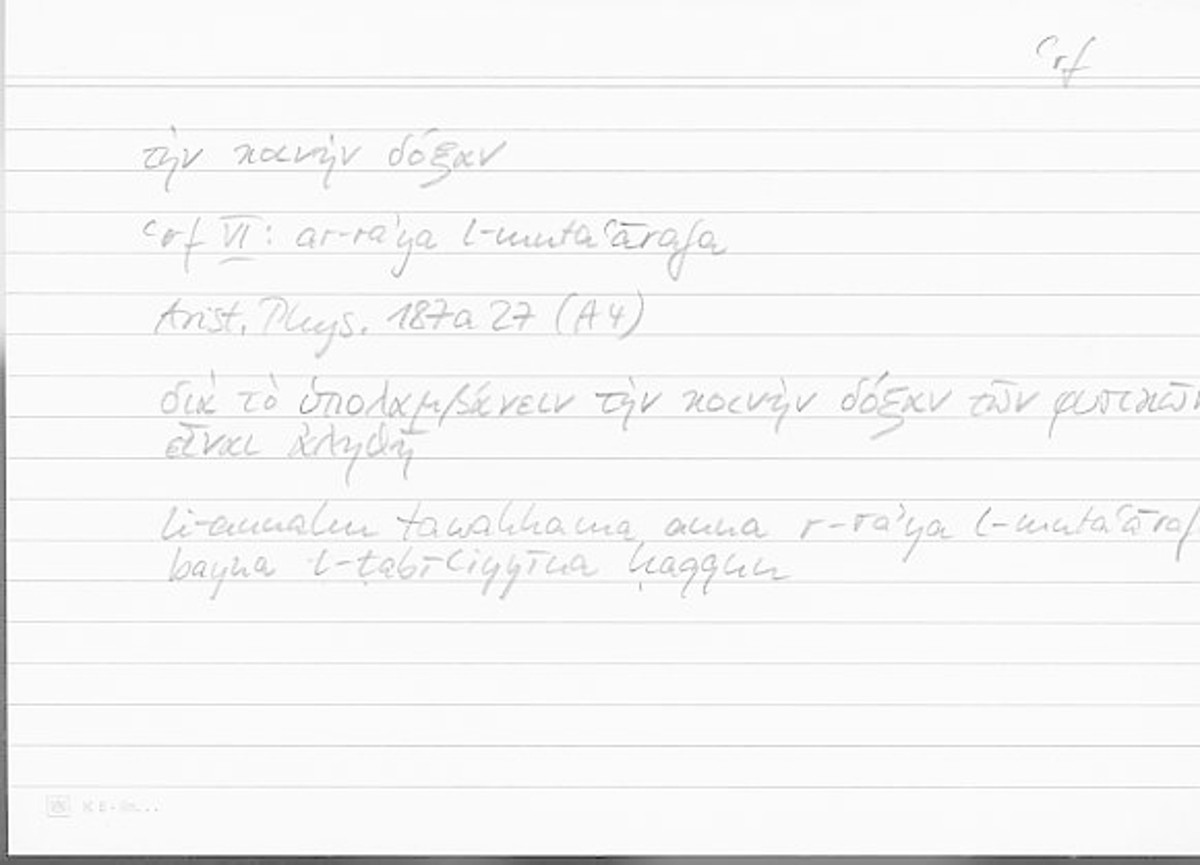 ʿrf
τὴν κοινὴν δόξαν
ʿrf VI: ar-raʾya l-mutaʿārafa
Arist. Phys. 187a 27 (A4)
διὰ τὸ ὑπολαμβάνειν τὴν κοινὴν δόξαν τῶν φυσικῶν
εἶναι ἀληθῆ
li-annahu tawahhama anna r-raʾya l-mutaʿāraf
bayna l-ṭabīʿiyyīna ḥaqqun